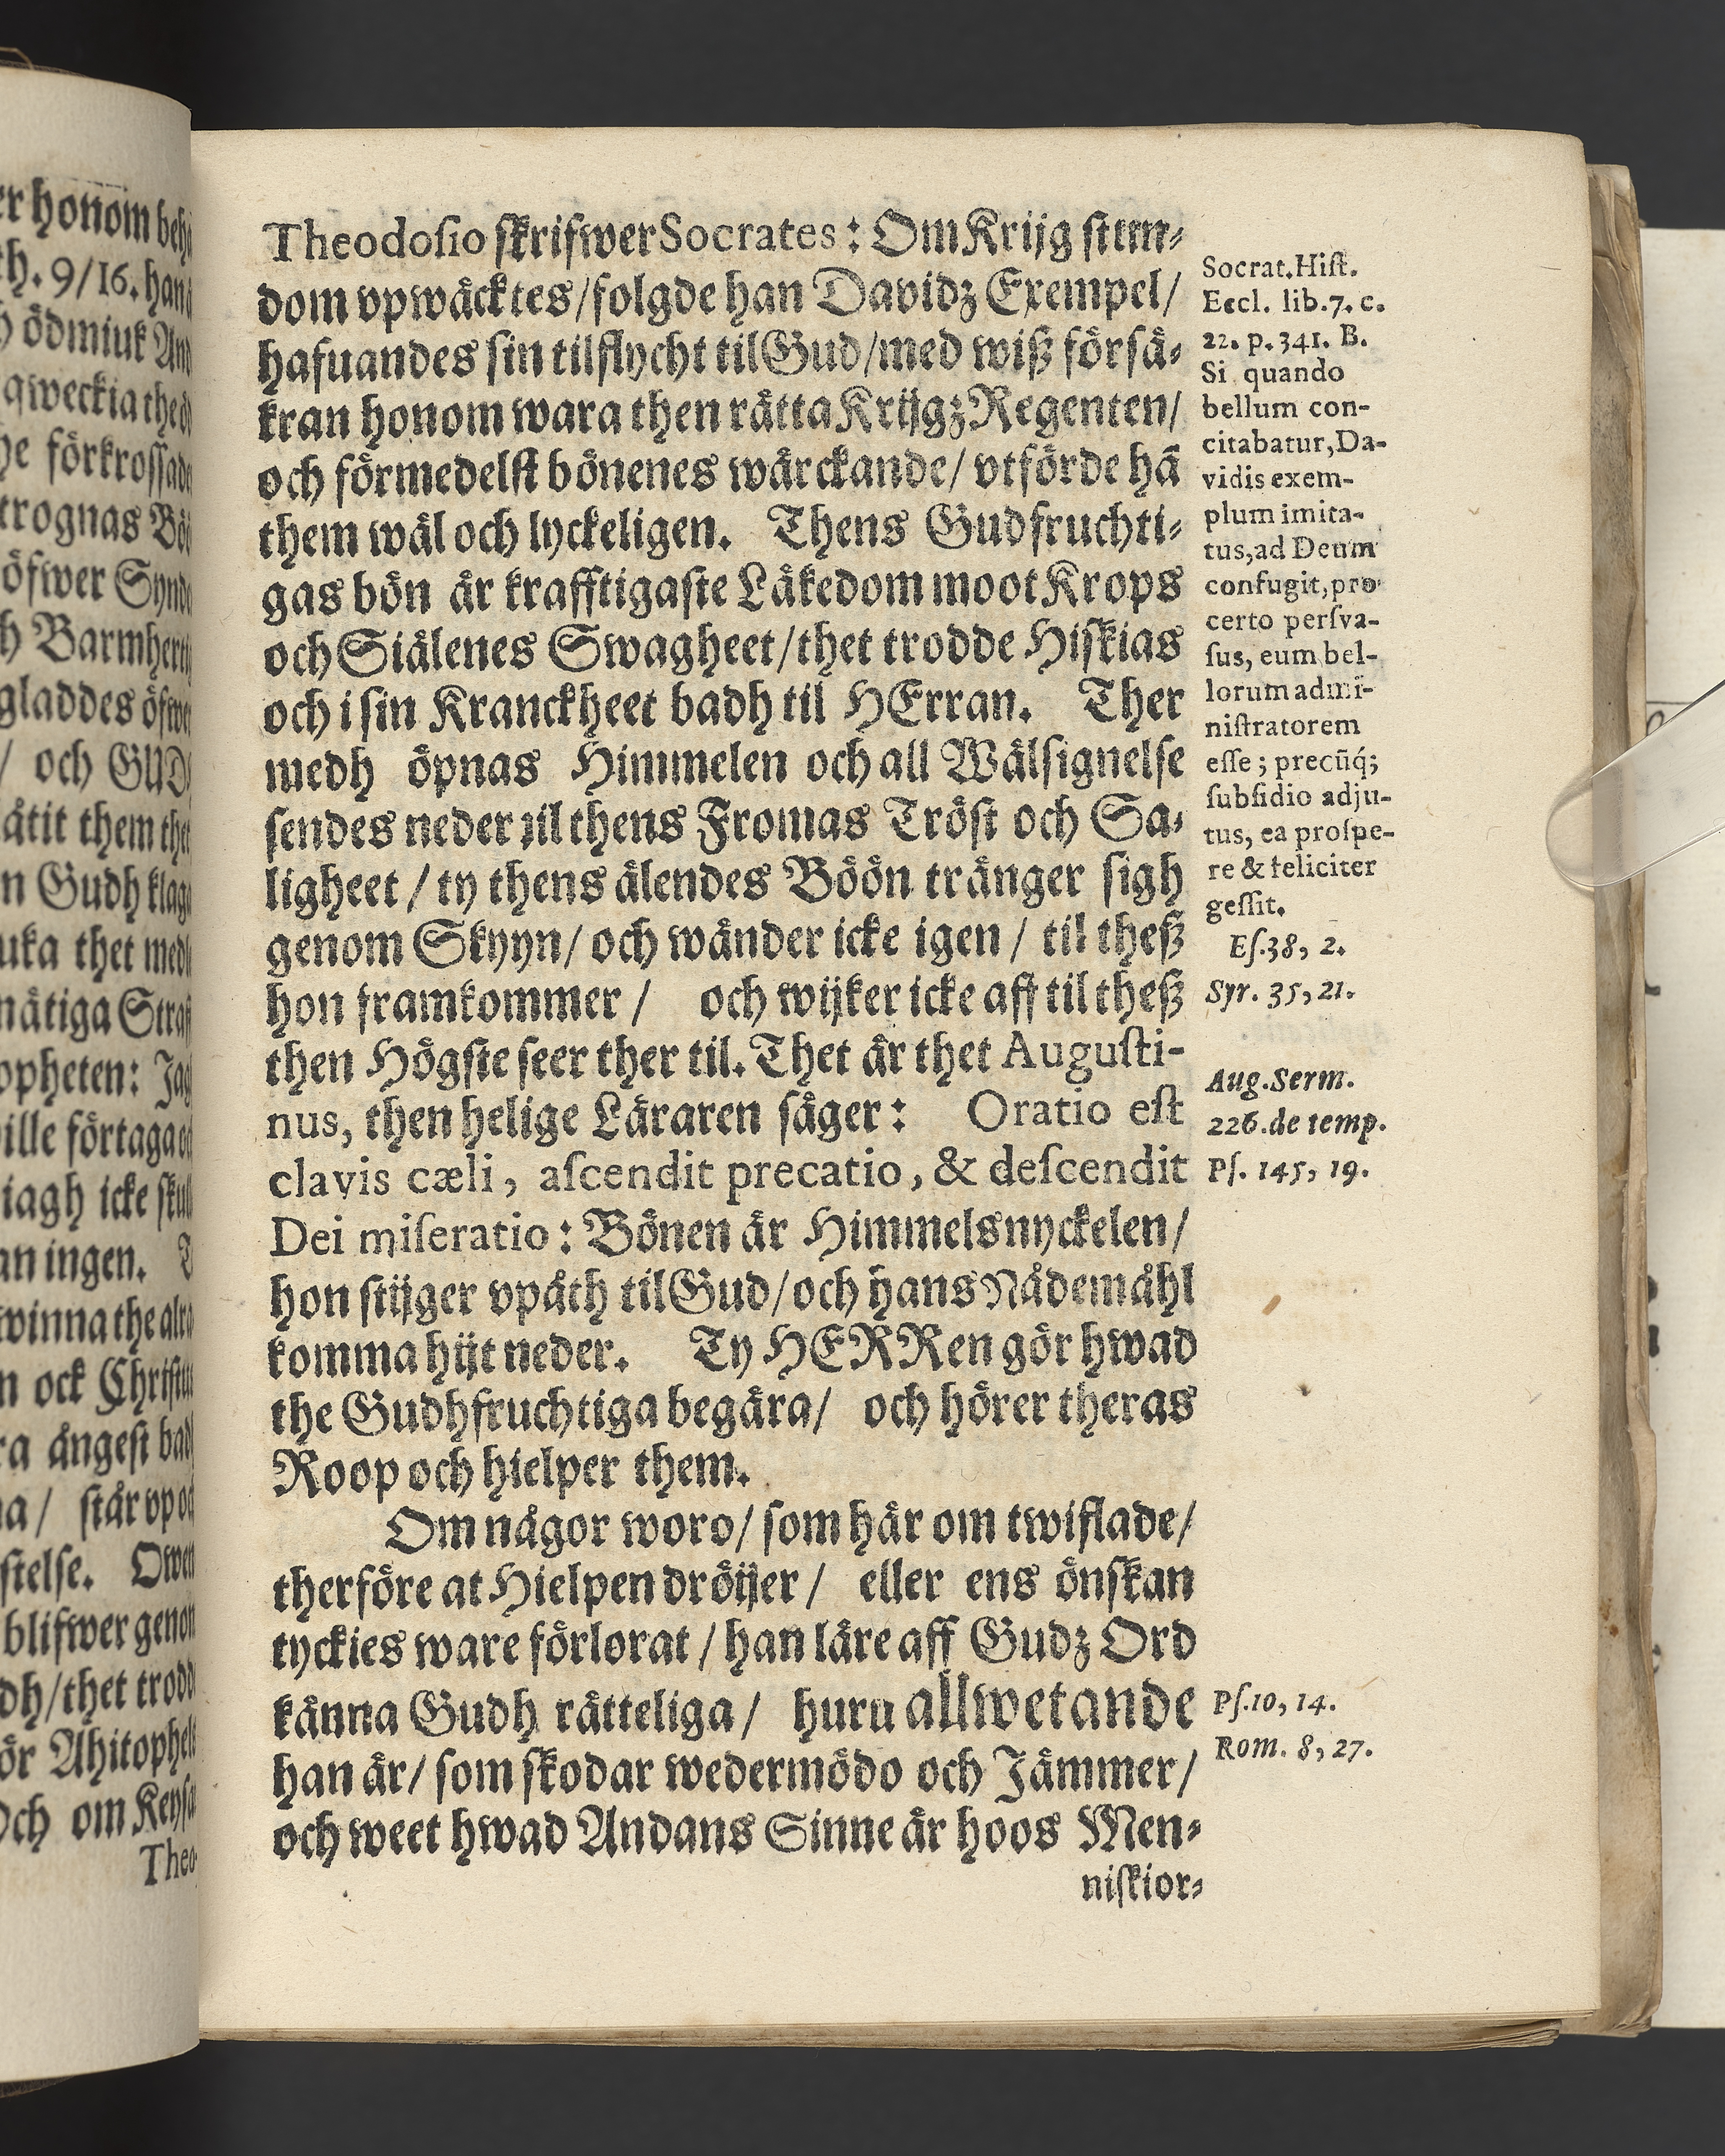 er honom beh
th. 9/16. han
ödmiuk And
qweckia the
he förkrossade
trognas Bö
öfwer Synd
h Barmhert
gladdes öfwe
/ och GUD
åtit them thet
n Gudh klag
uka thet med
nåtiga Straf
opheten: Jag
ille förtaga
iagh icke skul
an ingen.
winna the alra
n ock Christus
ra ångest bad
na / står vp oc
stelse. Owen
blifwer genom
dh/thet trodd
ör Ahitophels
Och om Keysa
Theo-
Theodoſio ſkrifwer Socrates: Om Krijg ſtun⸗
dom vpwäcktes/folgde han Davidz Exempel/
hafuandes ſin tilflycht til Gud/med wiß förſä⸗
kran honom wara then rätta Krijgz Regenten/
och förmedelſt bönenes wärckande/ vtförde hā
them wäl och lyckeligen. Thens Gudfruchti⸗
gas bön är krafftigaſte Läkedom moot Krops
och Siälenes Swagheet/thet trodde Hiſkias
och i ſin Kranckheet badh til HErran. Ther
medh öpnas Himmelen och all Wälſignelſe
ſendes neder til thens Fromas Tröſt och Sa⸗
ligheet / ty thens älendes Böön tränger ſigh
genom Skyyn/ och wänder icke igen / til theß
hon framkommer / och wijker icke aff til theß
then Högſte ſeer ther til. Thet är thet Auguſti-
nus, then helige Läraren ſäger: Oratio eſt
clavis cæli, aſcendit precatio, & deſcendit
Dei miſeratio: Bönen är Himmelsnyckelen/
hon ſtijger vpåth til Gud/och hans Nådemåhl
komma hijt neder. Ty HERRen gör hwad
the Gudhfruchtiga begära/ och hörer theras
Roop och hielper them.
Om någor woro/ ſom här om twiflade/
therföre at Hielpen dröijer / eller ens önſkan
tyckies ware förlorat / han läre aff Gudz Ord
känna Gudh rätteliga/ huru allwetande
han är/ ſom ſkodar wedermödo och Jämmer/
och weet hwad Andans Sinne är hoos Men⸗
niſkior⸗
Socrat.Hiſt.
Eccl. lib.7. c.
22. p.341. B.
Si quando
bellum con-
citabatur,Da-
vidis exem-
plum imita-
tus,ad Deum
confugit,pro
certo perſva-
ſus, eum bel-
lorum admi-
niſtratorem
eſſe; precūq́;
ſubſidio adju-
tus, ea proſpe-
re & feliciter
geſſit.
Eſ.38, 2.
Syr. 35, 21.
Aug.Serm.
226.de temp.
Pſ. 145, 19.
Pſ.10, 14.
Rom. 8, 27.